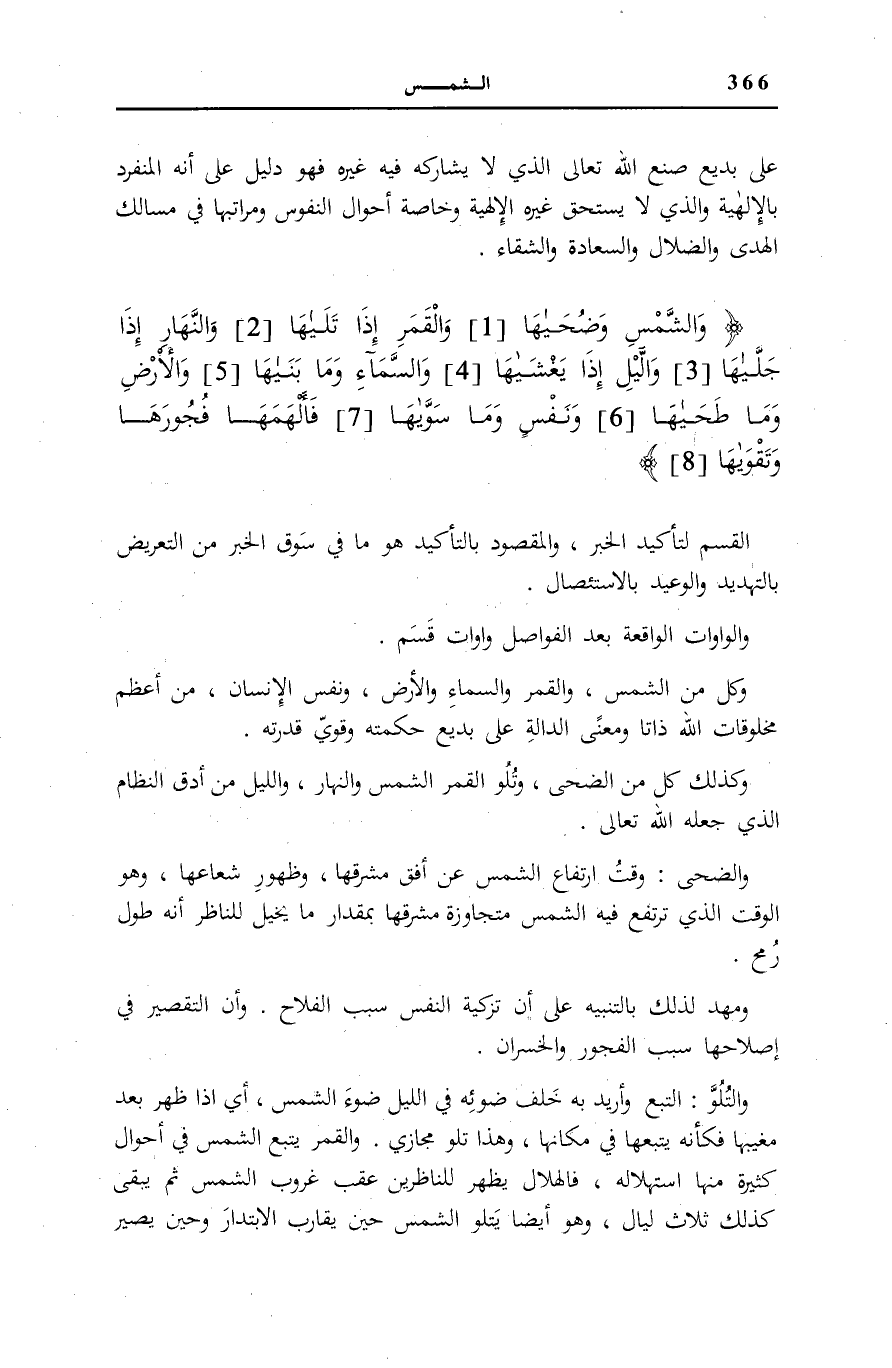 366
الـشمـــس
على بديع صنع الله تعالى الذي لا يشاركه فيه غيره فهو دليل على أنه المنفرد
بالإلٰهية والذي لا يستحق غيره الإلهية وخاصة أحوال النفوس ومراتبها في مسالك
الهدى والضلال والسعادة والشقاء .
﴿ وَالشَّمْسِ وَضُحَـيٰهَا [1] وَالْقَمَرِ إِذَا تَلَـيٰهَا [2] وَالنَّهَارِ إِذَا
جَلَّـيٰهَا [3] وَالَّيْلِ إِذَا يَغْشَـيٰهَا [4] وَالسَّمَآءِ وَمَا بَنَـيٰهَا [5] وَالْأَرْضِ
وَمَـا طَحَـيٰهَـا [6] وَنَـفْسٍ وَمَـا سَوَّيٰهَـا [7] فَأَلْهَمَهَـــا فُجُورَهَـــا
وَتَقْوَيٰهَا [8] ﴾
القسم لتأكيد الخبر ، والمقصود بالتأكيد هو ما في سَوق الخبر من التعريض
بالتهديد والوعيد بالاستئصال .
والواوات الواقعة بعد الفواصل واوات قَسَم .
وكل من الشمس ، والقمر والسماءِ والأرض ، ونفس الإنسان ، من أعظم
مخلوقات الله ذاتا ومعنًى الدالةِ على بديع حكمته وقويّ قدرته .
وكذلك كل من الضحى ، وتُلُو القمر الشمس والنهار ، والليل من أدق النظام
الذي جعله الله تعالى .
والضحى : وقتُ ارتفاع الشمس عن أفق مشرقها ، وظهورِ شعاعها ، وهو
الوقت الذي ترتفع فيه الشمس متجاوزة مشرقها بمقدار ما يخيل للناظر أنه طول
رُمح .
ومهد لذلك بالتنبيه على أن تزكية النفس سبب الفلاح . وأن التقصير في
إصلاحها سبب الفجور والخسران .
والتُلُوَّ : التبع وأريد به خَلف ضوئِه في الليل ضوءَ الشمس ، أي اذا ظهر بعد
مغيبها فكأنه يتبعها في مكانها ، وهذا تلو مجازي . والقمر يتبع الشمس في أحوال
كثيرة منها استهلاله ، فالهلال يظهر للناظرين عقب غروب الشمس ثم يبقى
كذلك ثلاث ليال ، وهو أيضا يَتلو الشمس حين يقارب الابتدارَ وحين يصير